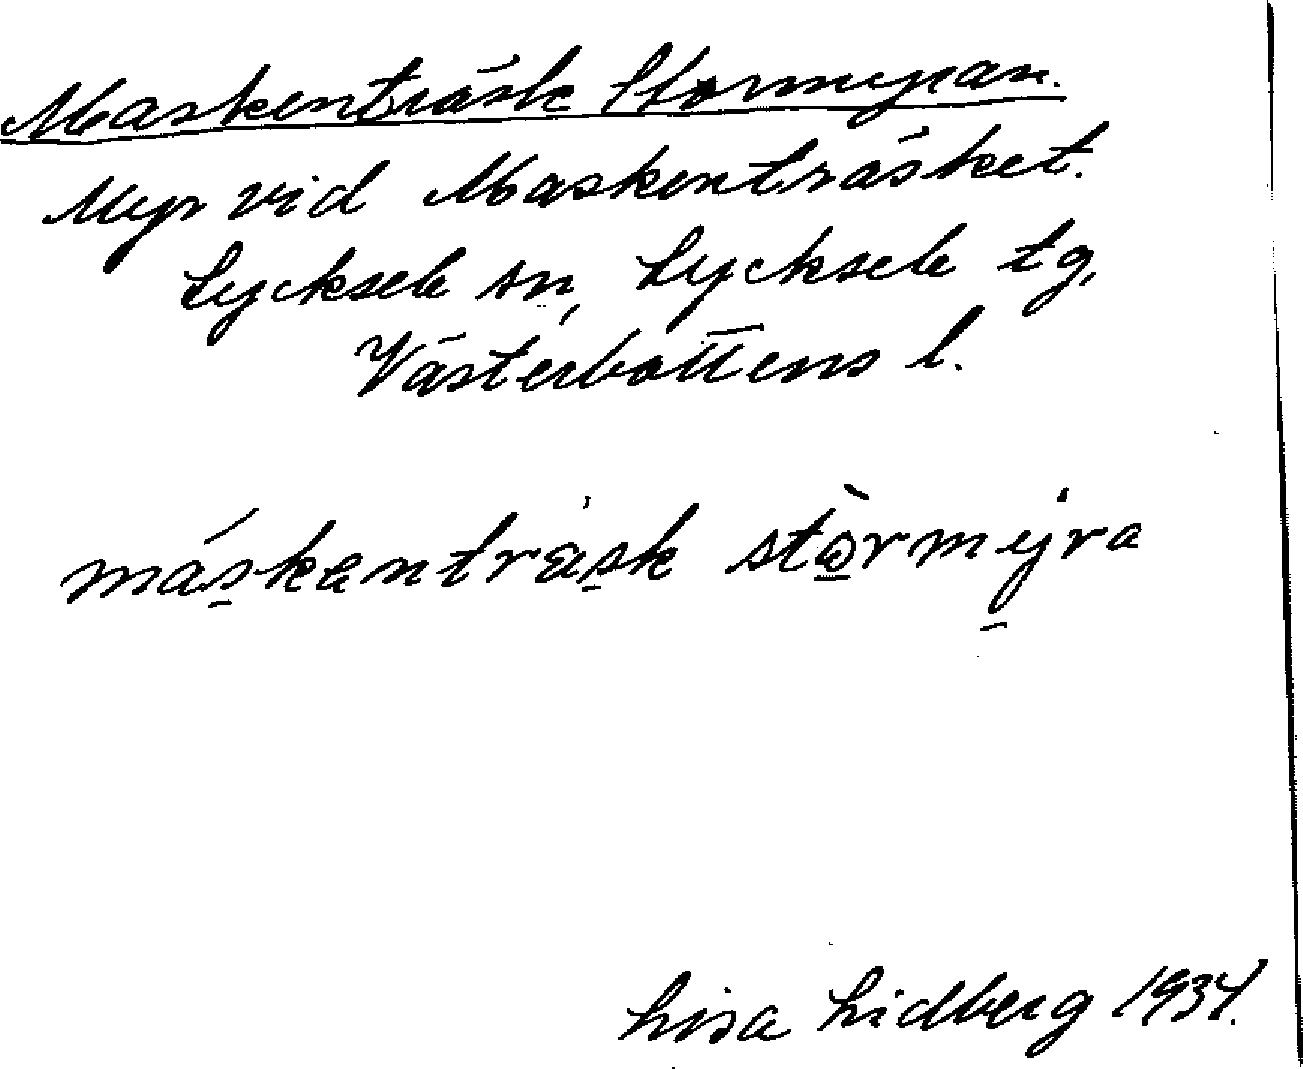 Maskenträsk Stormyran.
Myr vid Maskenträsket.
Lycksele sn, Lycksele tg,
Västerbottens l.
máskenträsk stòrmýra
Lisa Lidberg 1934.